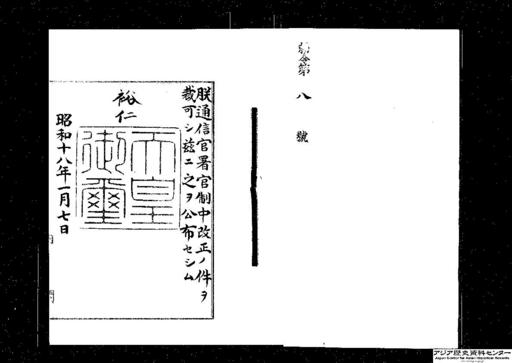 勅令第八號
朕通信官署官制中改正ノ件ヲ
裁可シ茲ニ之ヲ公布セシム
裕仁
天皇
御璽
昭和十八年一月七日
アジア歴史資料センター
Japan Center for Asian Historical Records